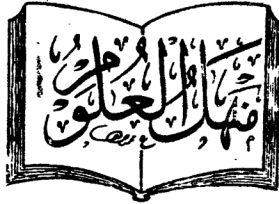 مَنْهَلُ الْعُلُومِ